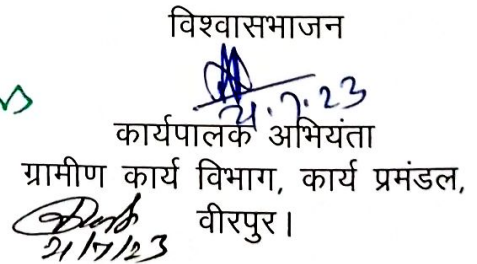 विश्वासभाजन
21.7.23
कार्यपालक अभियंता
ग्रामीण कार्य विभाग, कार्य प्रमंडल,
वीरपुर।
21/7/23